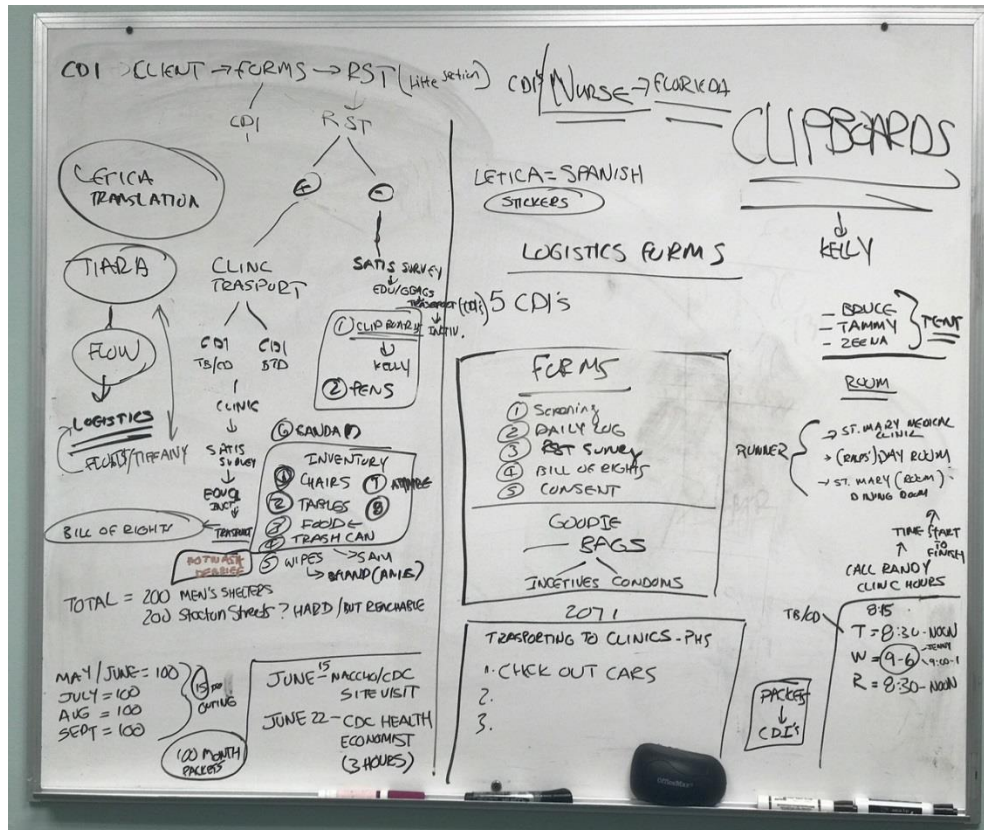 CDI → CLIENT → FORMS → RST
CDI
RST
+
-
LETICA
TRANSLATION
TIARA
FLOW
LOGISTICS
FLOATS/TIFFANY
CLINC
TRASPORT
CDI
TB/CD
CDI
STD
CLINIC
SATIS
SURVEY
INCT
TRASPORT
BILL OF RIGHTS
SATIS SURVEY
① CLIPBOARD
KELLY
② PENS
INVENTORY
① CHAIRS
② TABLES
③ FOOD
④ TRASH CAN
⑦
⑧
⑤ WIPES → SAM
TOTAL = 200 MEN'S SHELTERS
200 Stockton Streets? HARD/BUT REACHABLE
MAY/JUNE = 100
JULY = 100
AUG = 100
SEPT = 100
15 per
OUTING
100 MONTH
PACKETS
JUNE 15 - NACCHO/CDC
SITE VISIT
JUNE 22 - CDC HEALTH
ECONOMIST
(3 HOURS)
CDI'S/NURSE → FLORIEDA
CLIPBOARDS
KELLY
LETICA = SPANISH
STICKERS
LOGISTICS FORMS
5 CDI'S
FORMS
① Screening
② DAILY LOG
③ RST SURVEY
④ BILL OF RIGHTS
⑤ CONSENT
GOODIE
BAGS
INCETIVES CONDOMS
2071
TRASPORTING TO CLINICS - PHS
1. CHCK OUT CARS
2.
3.
PACKETS
CDI'S
- BRUCE
- TAMMY
- ZEENA
TENT
ROOM
RUNNER
→ ST. MARY MEDICAL
CLINIC
→ DAY ROOM
→ ST. MARY (ROOM)
DINING ROOM
TIME START
TO
FINISH
CALL RANDY
CLINC HOURS
TB/CD
8:15
T = 8:30 - NOON
W = 9-6
R = 8:30 - NOON
OfficeMax